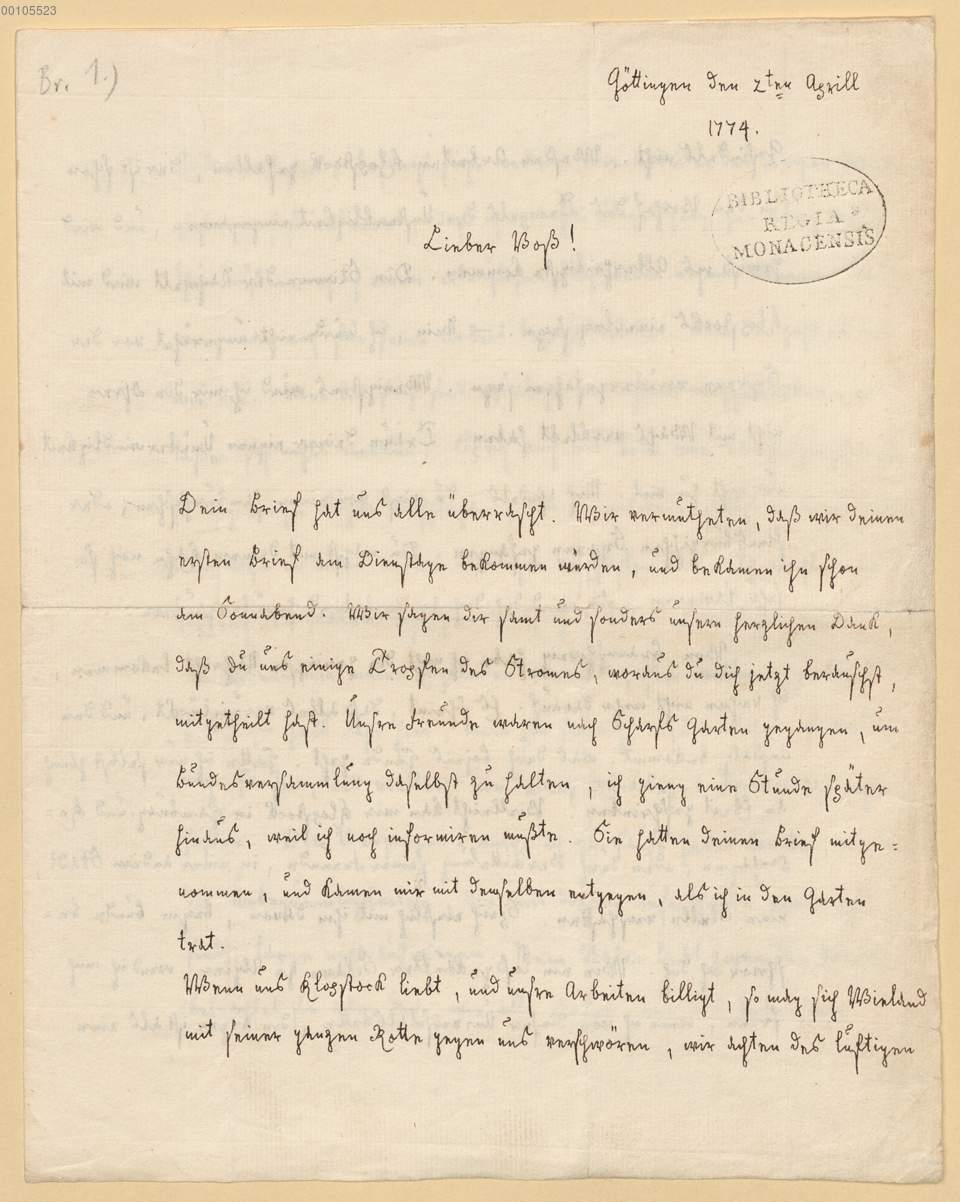 00105523
Br. 1.)
Göttingen den 2ten Aprill
1774.
BIBLIOTHECA
REGIA
MONACENSIS
Lieber Voß!
Dein Brief hat uns alle überrascht. Wir vermutheten, daß wir deinen
ersten Brief am Dienstage bekommen würden, und bekamen ihn schon
am Sonnabend. Wir sagen dir samt und sonders unsern herzlichen Dank,
daß du uns einige Tropfen des Stromes, woraus du dich jetzt berauschst,
mitgetheilt hast. Unsre Freunde waren nach Scharfs Garten gegangen, um
Bundesversammlung daselbst zu halten, ich gieng eine Stunde später
hinaus, weil ich noch informiren mußte. Sie hatten deinen Brief mitge=
nommen, und kamen mir mit demselben entgegen, als ich in den Garten
trat.
Wenn uns Klopstock liebt, und unsre Arbeiten billigt, so mag sich Wieland
mit seiner ganzen Rotte gegen uns verschwören, wir achten des luftigen